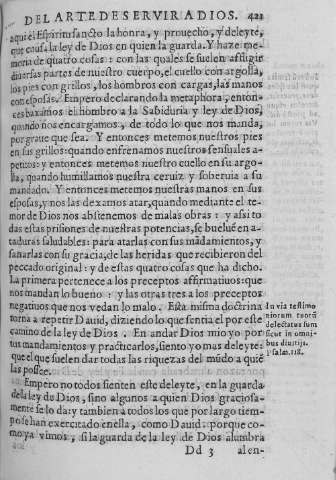 DEL ARTE DE SERVIR A DIOS. 421
aqui el Espiritu sancto la honra, y prouecho, y deleyte,
que causa la ley de Dios en quien la guarda. Y haze me-
moria de quatro cosas: con las quales se suelen affligir
diuersas partes de nuestro cuerpo, el cuello con argolla,
los pies con grillos, los hombros con cargas, las manos
con esposas. Empero declarando la metaphora, enton-
ces baxamos el hombro a la Sabiduria y ley de Dios,
quando nos encargamos, de todo lo que nos manda,
por graue que sea. Y entonces metemos nuestros pies
en sus grillos: quando enfrenamos nuestros sensuales a-
petitos: y entonces metemos nuestro cuello en su argo-
lla, quando humillamos nuestra ceruiz y soberuia a su
mandado. Y entonces metemos nuestras manos en sus
esposas, y nos las dexamos atar, quando mediante el te-
mor de Dios nos abstenemos de malas obras: y assi to
das estas prisiones de nuestras potencias, se bueluẽ en a-
taduras saludables: para atarlas con sus mãdamientos, y
sanarlas con su gracia, de las heridas que recibieron del
peccado original: y de estas quatro cosas que ha dicho.
La primera pertenece a los preceptos affirmatiuos: que
nos mandan lo bueno: y las otras tres a los preceptos
negatiuos que nos vedan lo malo. Esta misma doctrina
torna a repetir Dauid, diziendo lo que sentia el por este
camino de la ley de Dios. En andar Dios mio yo por
tus mandamientos y practicarlos, siento yo mas deleyte:
que el que suelen dar todas las riquezas del mũdo a quiẽ
las possee.
In via testimo
niorum tuorũ
delectatus sum
sicut in omni
bus diuitijs.
Psalm. 118.
Empero no todos sienten este deleyte, en la guarda
de la ley de Dios, sino algunos a quien Dios graciosa-
mente se lo da: y tambien a todos los que por largo tiem-
po se han exercitado en ella, como Dauid: porque co-
mo ya vimos, si la guarda de la ley de Dios alumbra
Dd 3 al en-